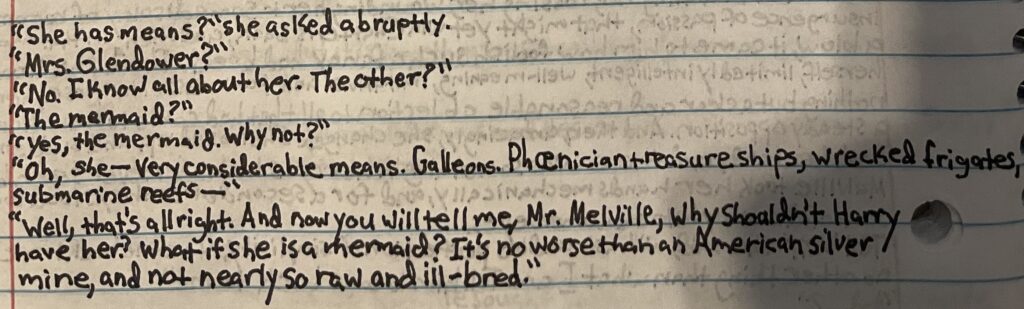 "She has means?" she asked abruptly.
"Mrs. Glendower?"
"No. I know all about her. The other?"
"The mermaid?"
"yes, the mermaid. Why not?"
"Oh, she—Very considerable means. Galleons. Phœnician treasure ships, wrecked frigates,
submarine reefs—"
"Well, that's all right. And now you will tell me, Mr. Melville, why shouldn't Harry
have her? What if she is a mermaid? It's no worse than an American silver
mine, and not nearly so raw and ill-bred."